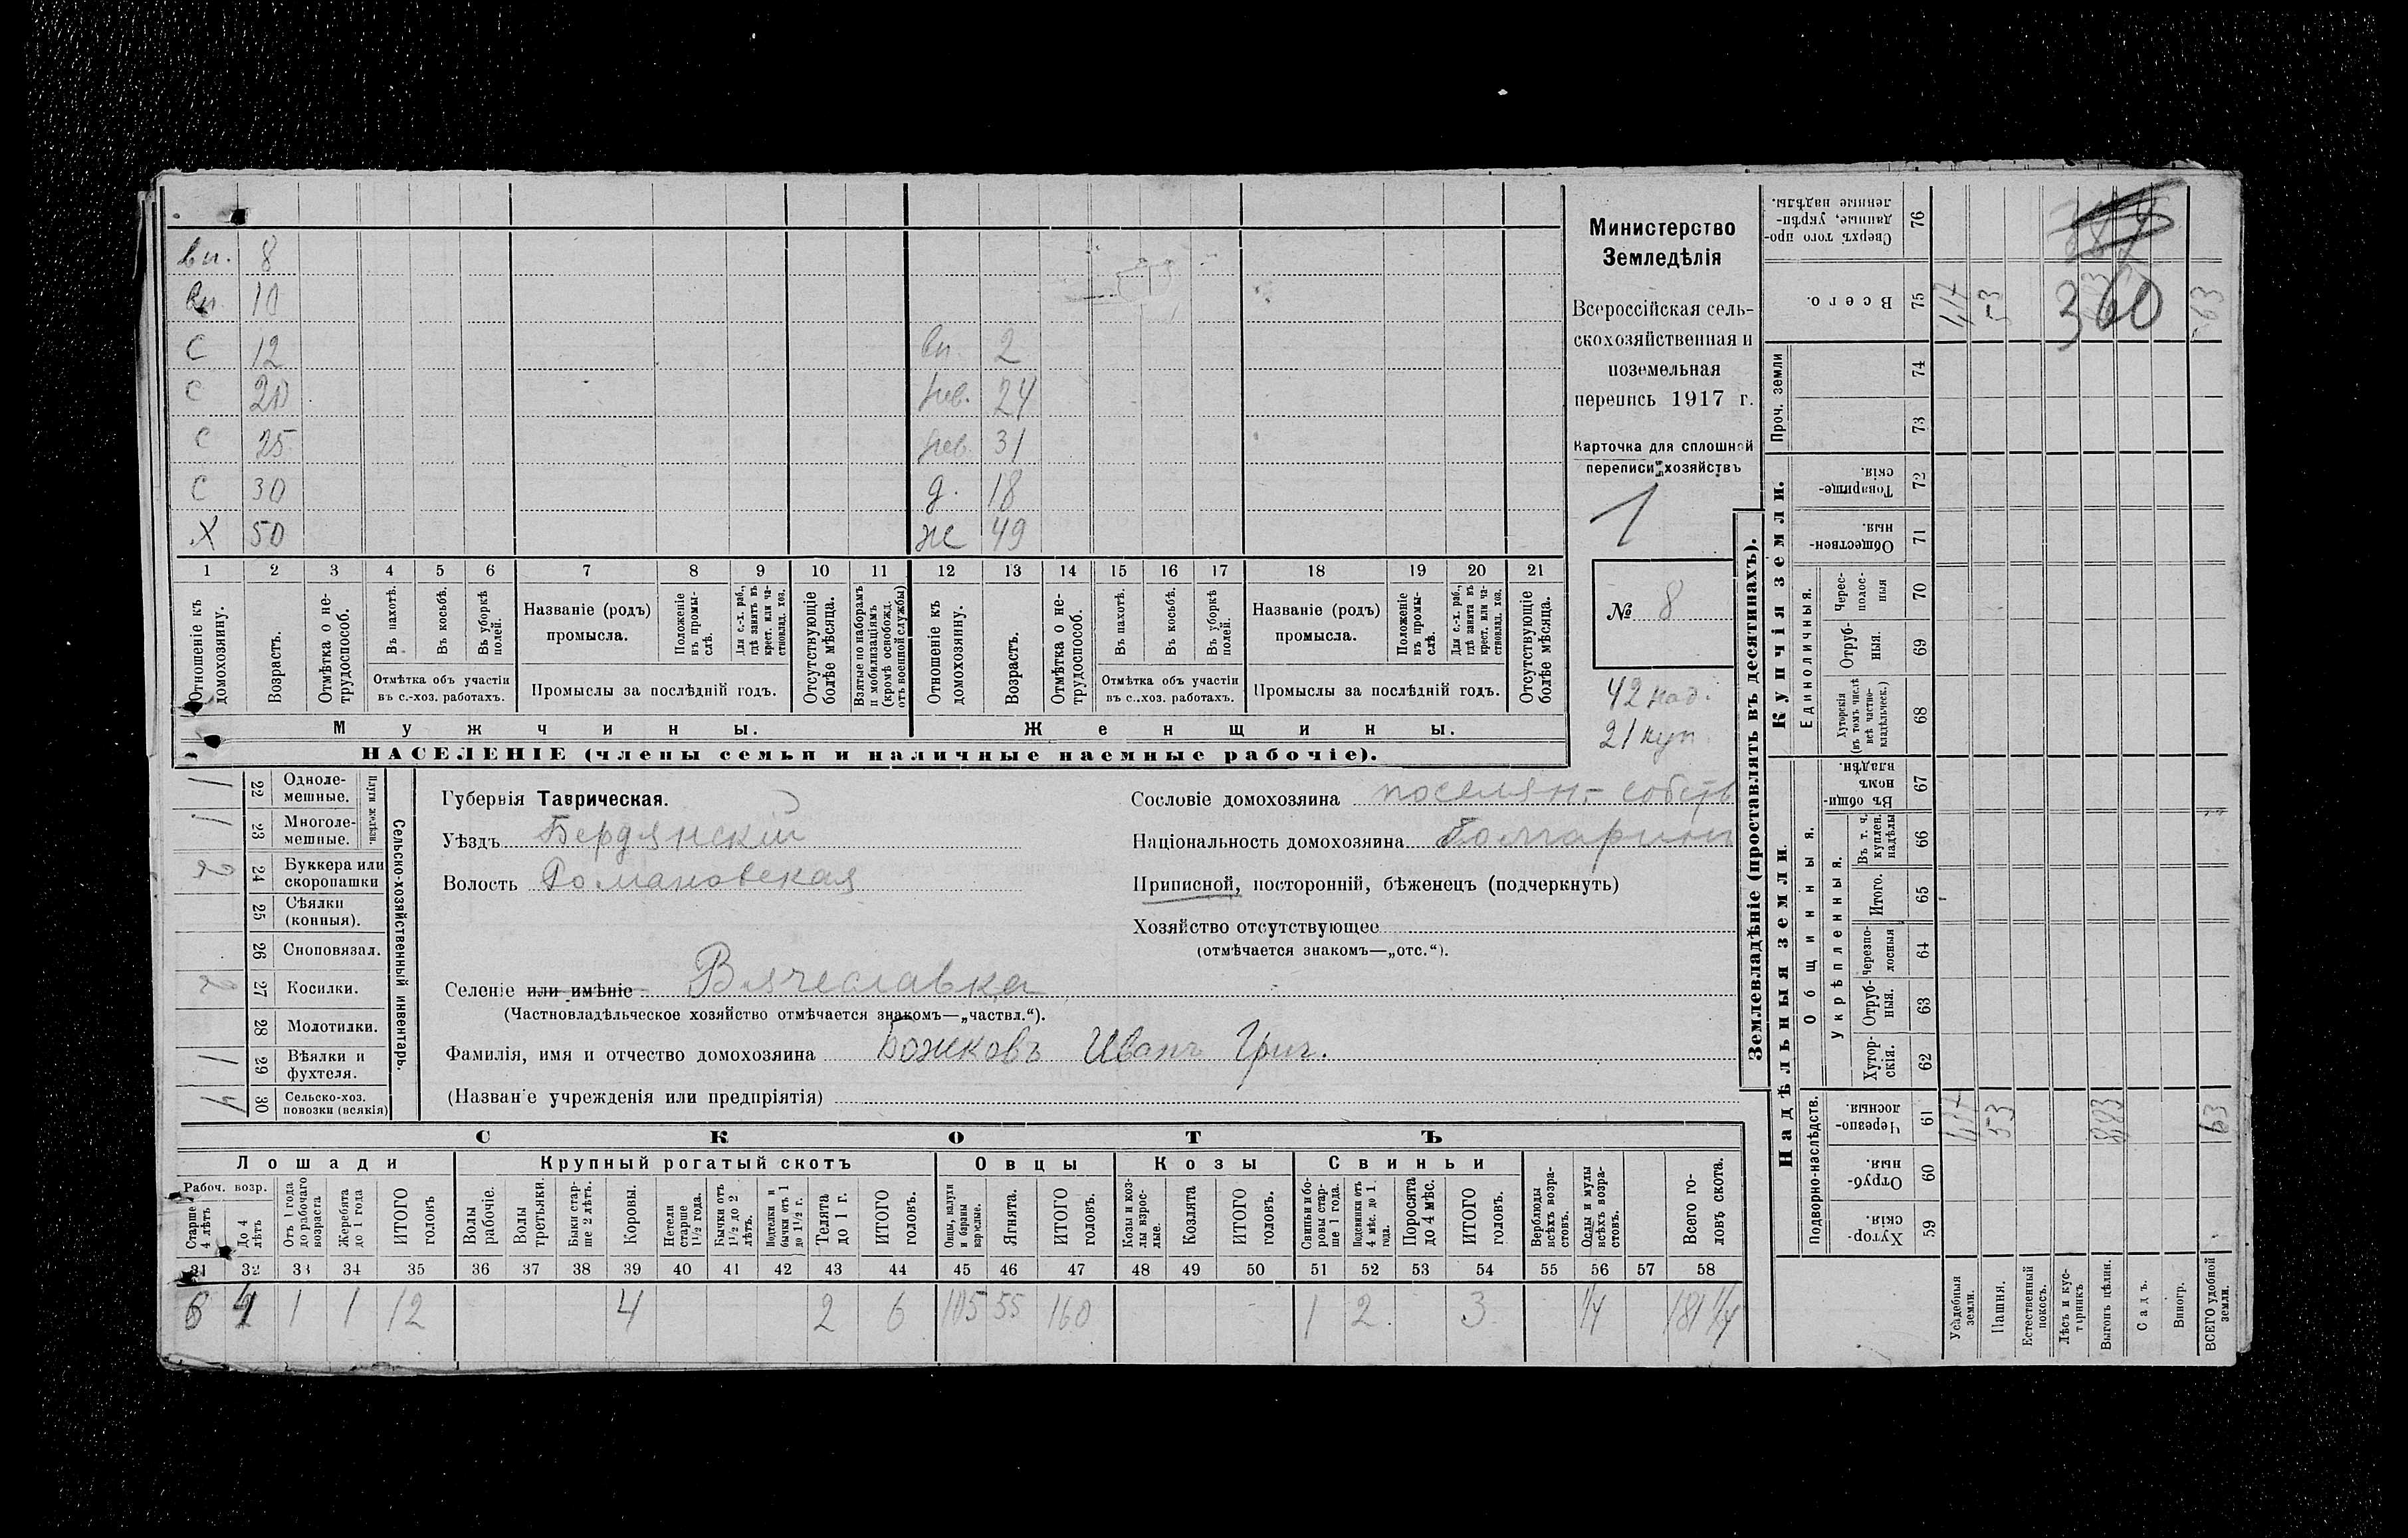 вн. 8
вн. 10
С 12 вн. 2
С 20 нев. 24
С 25 нев. 31
С 30 д. 18
Х 50 же 49
1 2 3 4 5 6 7 8 9 10 11 12 13 14 15 16 17 18 19 20 21
Отношеніе къ домохозяину.
Возрастъ.
Отмѣтка о не-трудоспособ.
Въ пахотѣ.
Въ косьбѣ.
Въ уборкѣ полей.
Отмѣтка объ участіи
въ с.-хоз. работахъ.
Названіе (родъ)
промысла.
Положеніе въ промы-слѣ.
Для с.-х. раб., гдѣ занятъ въ крест. или ча-стновлад. хоз.
Промыслы за послѣдній годъ.
Отсутствующіе болѣе мѣсяца.
Взятые по наборамъ и мобилизаціямъ (кромѣ освобожд. отъ военной службы)
Отношеніе къ домохозяину.
Возрастъ.
Отмѣтка о не-трудоспособ.
Въ пахотѣ.
Въ косьбѣ.
Въ уборкѣ полей.
Отмѣтка объ участіи
въ с..хоз. работахъ.
Названіе (родъ)
промысла.
Положеніе въ промы-слѣ.
Для с.-х. раб., гдѣ занята въ крест. или ча-стновлад. хоз.
Промыслы за послѣдній годъ.
Отсутствующіе болѣе мѣсяца.
Мужчины. Женщины.
НАСЕЛЕНІЕ (члены семьи и наличные наемные рабочіе).
Министерство
Земледѣлія
Всероссійская сель-
скохозяйственная и
поземельная
перепись 1917 г.
Карточка для сплошной
переписи хозяйствъ
1
№ 8
42 над.
21 куп.
1 22 Одноле-мешные.
1 23 Многоле-мешные.
Плуги желѣзн.
2 24 Буккера или скоропашки
25 Сѣялки (конныя).
26 Сноповязал.
2 27 Косилки.
28 Молотилки.
1 29 Вѣялки и фухтеля.
4 30 Сельско-хоз. повозки (всякія)
Сельско-хозяйственный инвентарь.
Губернія Таврическая.
Уѣздъ Бердянскій
Волость Романовская
Селеніе или имѣніе Вячеславка
(Частновладѣльческое хозяйство отмѣчается знакомъ—„частвл.“).
Фамилія, имя и отчество домохозяина Божковъ Иванъ Григ.
(Названіе учрежденія или предпріятія)
Сословіе домохозяина поселян.- собств
Національность домохозяина болгаринъ
Приписной, посторонній, бѣженецъ (подчеркнуть)
Хозяйство отсутствующее
(отмѣчается знакомъ—„отс.“).
СКОТЪ
Лошади Крупный рогатый скотъ Овцы Козы Свиньи
Рабоч. возр.
Старше 4 лѣтъ
До 4 лѣтъ
Отъ 1 года до рабочаго возраста
Жеребята до 1 года
ИТОГО головъ
Волы рабочіе.
Волы третьяки.
Быки стар-ше 2 лѣтъ.
Коровы.
Нетели старше 1½ года.
Бычки отъ 1½ до 2 лѣтъ.
Подтелки и бычки отъ 1 до 1½ г.
Телята до 1 г.
ИТОГО головъ.
Овцы, валухи и бараны взрослые.
Ягнята.
ИТОГО головъ.
Козы и коз-лы взрос-лые.
Козлята
ИТОГО головъ.
Свиньи и бо-ровы стар-ше 1 года.
Подсвинки отъ 4 мѣс. до 1 года.
Поросята до 4 мѣс.
ИТОГО головъ.
Верблюды всѣхъ возра-стовъ.
Ослы и мулы всѣхъ возра-стовъ.
Всего го-ловъ скота.
31 32 33 34 35 36 37 38 39 40 41 42 43 44 45 46 47 48 49 50 51 52 53 54 55 56 57 58
6 4 1 1 12 4 2 6 105 55 160 1 2 3 1/4 181 1/4
Землевладѣніе (проставлять въ десятинахъ).
Купчія земли.
Надѣльныя земли
Сверхъ того про-данные, укрѣп-ленные надѣлы. 76
Всего. 75 53 360 63
Проч. земли 74 73
Товарище-скія. 72
Обществен-ныя. 71
Единоличныя.
Черес-полос-ныя 70
Отруб-ныя. 69
Хуторскія (въ томъ числѣ всѣ частно-владѣльческ.) 68
Общинныя.
Въ общи-номъ владѣн. 67
Укрѣпленныя.
Въ т. ч. куплен. надѣлы 66
Итого. 65
Черезпо-лосныя 64
Отруб-ныя. 63
Хутор-скія. 62
Подворно-наслѣдств.
Черезпо-лосныя. 61 53 63
Отруб-ныя. 60
Хутор-скія. 59
Усадебныя земли.
Пашня.
Естественный покосъ.
Лѣсъ и кус-тарникъ
Выгонъ цѣлин.
Садъ.
Виногр.
ВСЕГО удобной земли.